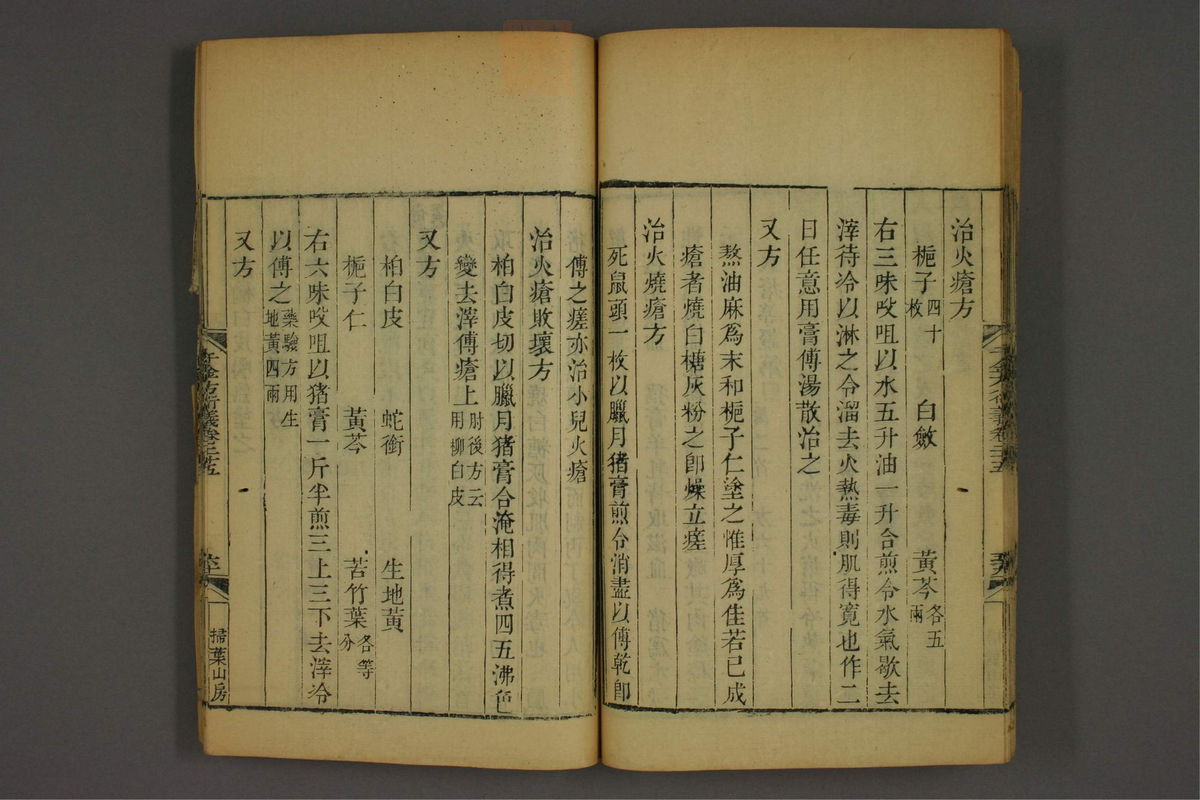 治火瘡方
梔子四十枚 白斂 黃芩各五兩
右三味㕮咀以水五升油一升合煎令水氣歇去
滓待冷以淋之令溜去火熱毒則肌得寬也作二
日任意用膏傅湯散治之
又方
熬油麻爲末和梔子仁塗之惟厚爲佳若已成
瘡者燒白糖灰粉之卽燥立瘥
治火燒瘡方
死鼠頭一枚以臘月猪膏煎令消盡以傅乾卽
傅之瘥亦治小兒火瘡
治火瘡敗壞方
柏白皮切以臘月猪膏合淹相得煮四五沸色
變去滓傅瘡上肘後方云用柳白皮
又方
柏白皮 蛇銜 生地黃
梔子仁 黃芩 苦竹葉各等分
右六味㕮咀以猪膏一斤半煎三上三下去滓冷
以傅之藥驗方用生地黃四兩
又方
千金方衍義卷二十五
掃葉山房